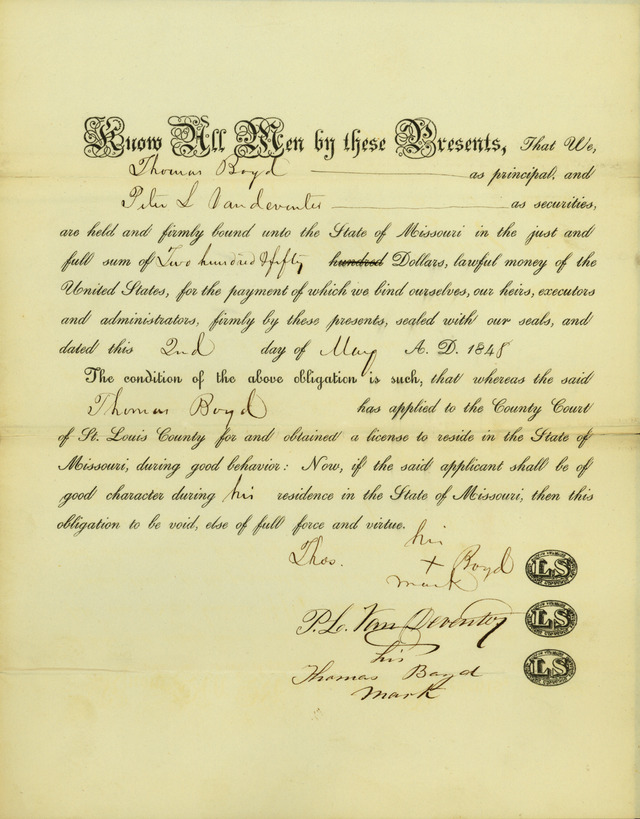 Know All Men by these Presents, That We,
Thomas Boyd as principal, and
Peter L Vandeventer as securities,
are held and firmly bound unto the State of Missouri in the just and
full sum of Two hundred & fifty hundred Dollars, lawful money of the
United States, for the payment of which we bind ourselves, our heirs, executors
and administrators, firmly by these presents, sealed with our seals, and
dated this 2nd day of May A. D. 1848
The condition of the above obligation is such, that whereas the said
Thomas Boyd has applied to the County Court
of St. Louis County for and obtained a license to reside in the State of
Missouri, during good behavior: Now, if the said applicant shall be of
good character during his residence in the State of Missouri, then this
obligation to be void, else of full force and virtue.
his
Thos. + Boyd LS
mark
P. L. Van Deventer LS
his
Thomas Boyd LS
mark